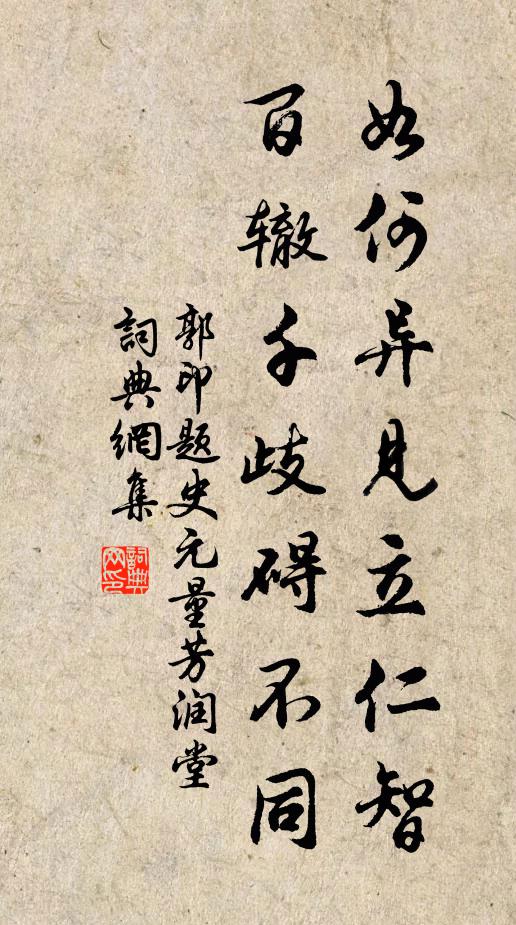 如何异见立仁智
百辙千歧碍不同
郭印题史元量芳润堂
詞典網集
詞典网印